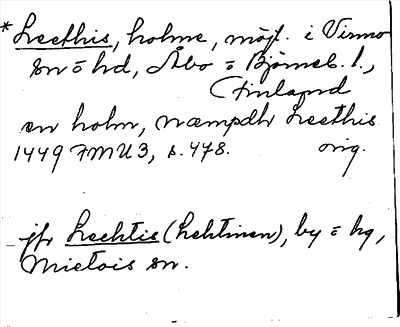 * Leethis, holme, möjl. i Virmo
sn o hd, Åbo = Björneb. l.,
(Finland
en holm, næmpdh Leethis
1449 FMU 3, s. 478. orig.
jfr Leehtis (Lehtinen), by = hg,
Mietois sn.